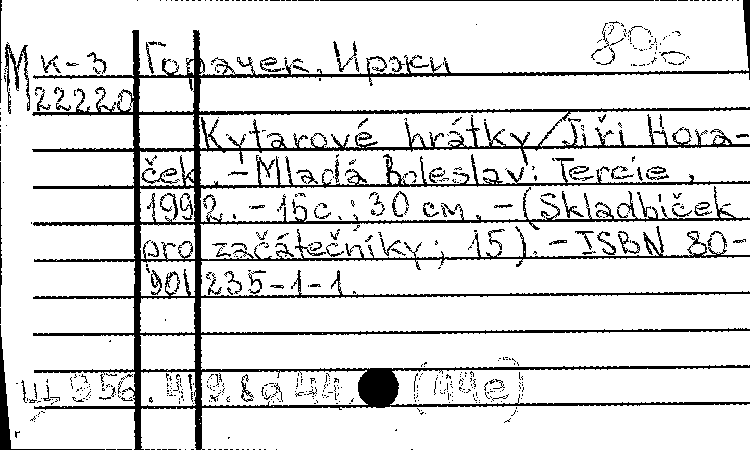 896
М к-3 Горачек, Иржи
22220
Kytarové hrátky / Jiří Hora-
ček. - Mladá Boleslav: Tercie,
1992. - 16 с.; 30 см. - (Skladbiček
pro začátečníky; 15). - ISBN 80-
901235-1-1.
Щ 956.419.8а44. (44е)